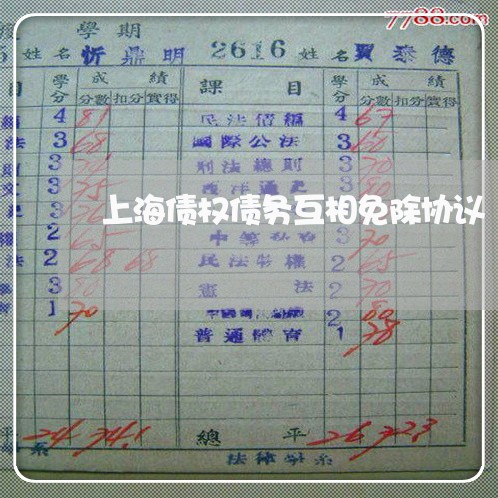 7788.com
學期
姓名 忻鼎明 2616 姓名 賈泰德
目 學分 成績 課目 學分 成績
分數 扣分 實得 分數 扣分 實得
4 81 民法債編 4 67
法 3 68 國際公法 3 60
3 刑法總則 3 70
3 75 西洋通史 3 80
上海债权债务互相免除协议
2 65 3 70
法 2 68 68 民法物權 2 65
3 80 憲法 2 70
1 70 2 80
普通體育 1 78
平 24 74.1 總平 26 72.3
系 法律學系